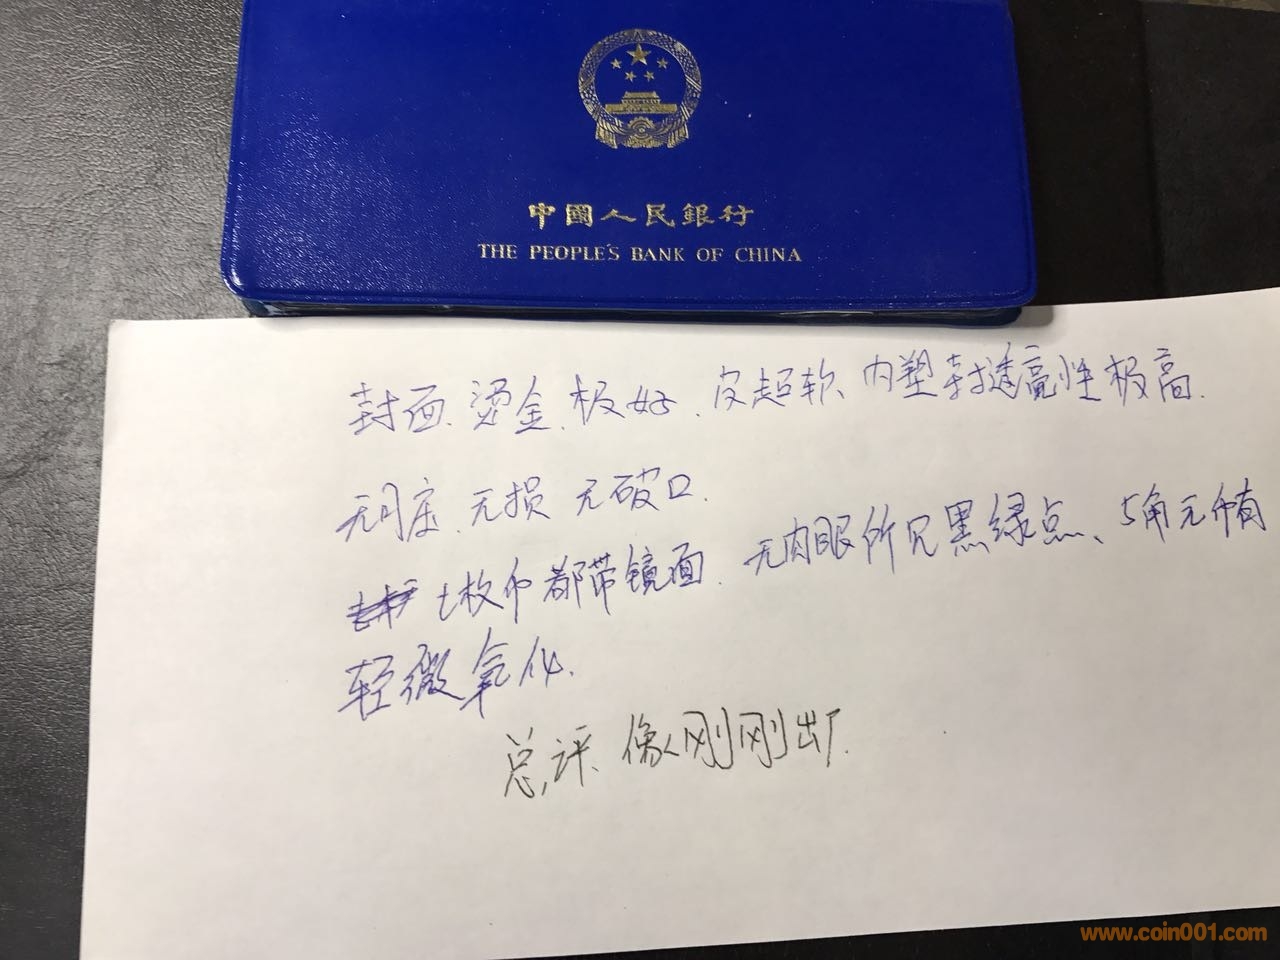 中國人民銀行
THE PEOPLE'S BANK OF CHINA
封面、烫金、极好、皮超软、内塑封透亮性极高.
无月座、无损 无破口.
七枚币都带镜面、无肉眼所见黑绿点、5角元币有
轻微氧化.
总评、像刚刚出厂.
www.coin001.com